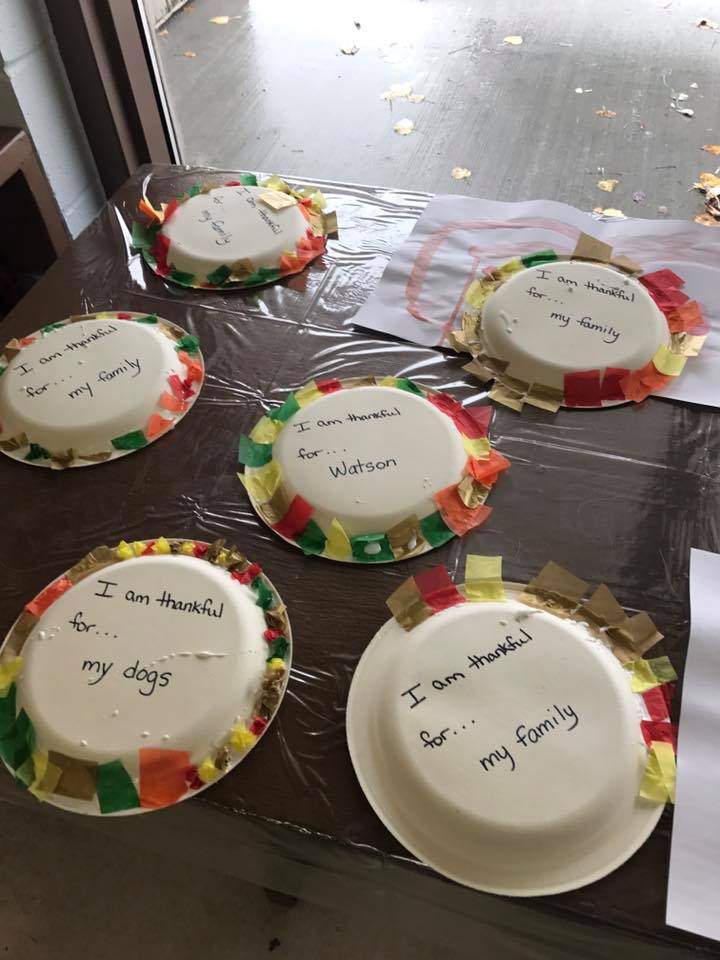 I am thankful
for...
my family
I am thankful
for...
my family
I am thankful
for....
my family
I am thankful
for...
Watson
I am thankful
for...
my dogs
I am thankful
for...
my family